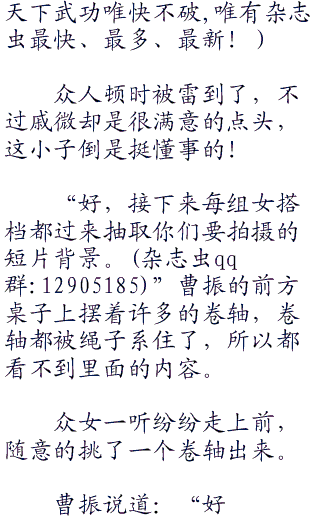 天下武功唯快不破,唯有杂志
虫最快、最多、最新! )
众人顿时被雷到了，不
过戚微却是很满意的点头，
这小子倒是挺懂事的!
“好，接下来每组女搭
档都过来抽取你们要拍摄的
短片背景。(杂志虫qq
群:12905185)”曹振的前方
桌子上摆着许多的卷轴，卷
轴都被绳子系住了，所以都
看不到里面的内容。
众女一听纷纷走上前，
随意的挑了一个卷轴出来。
曹振说道：“好